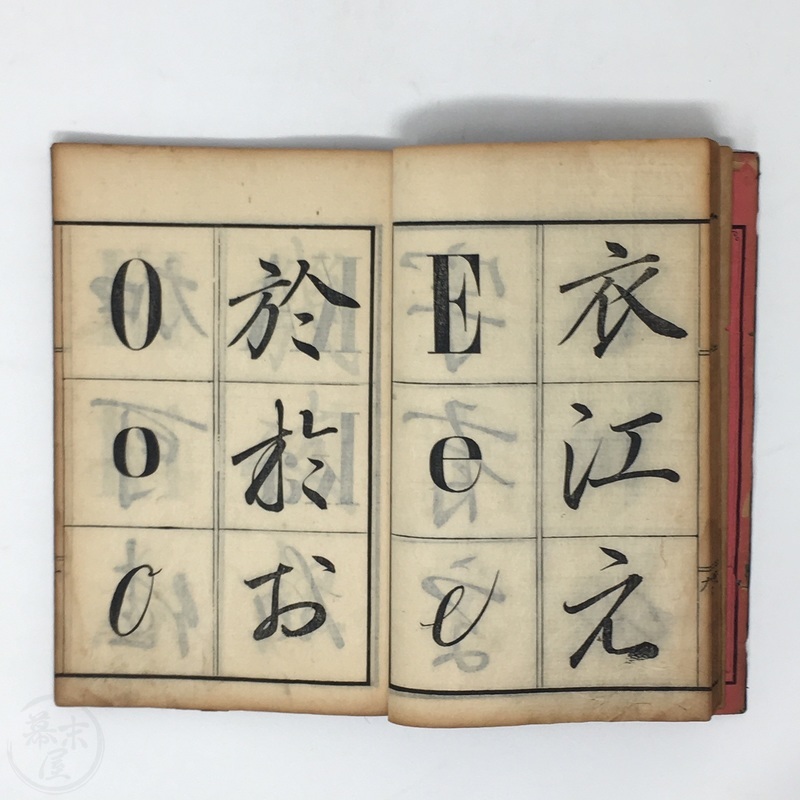 衣江え
E
e
e
於於お
O
o
o
幕末屋